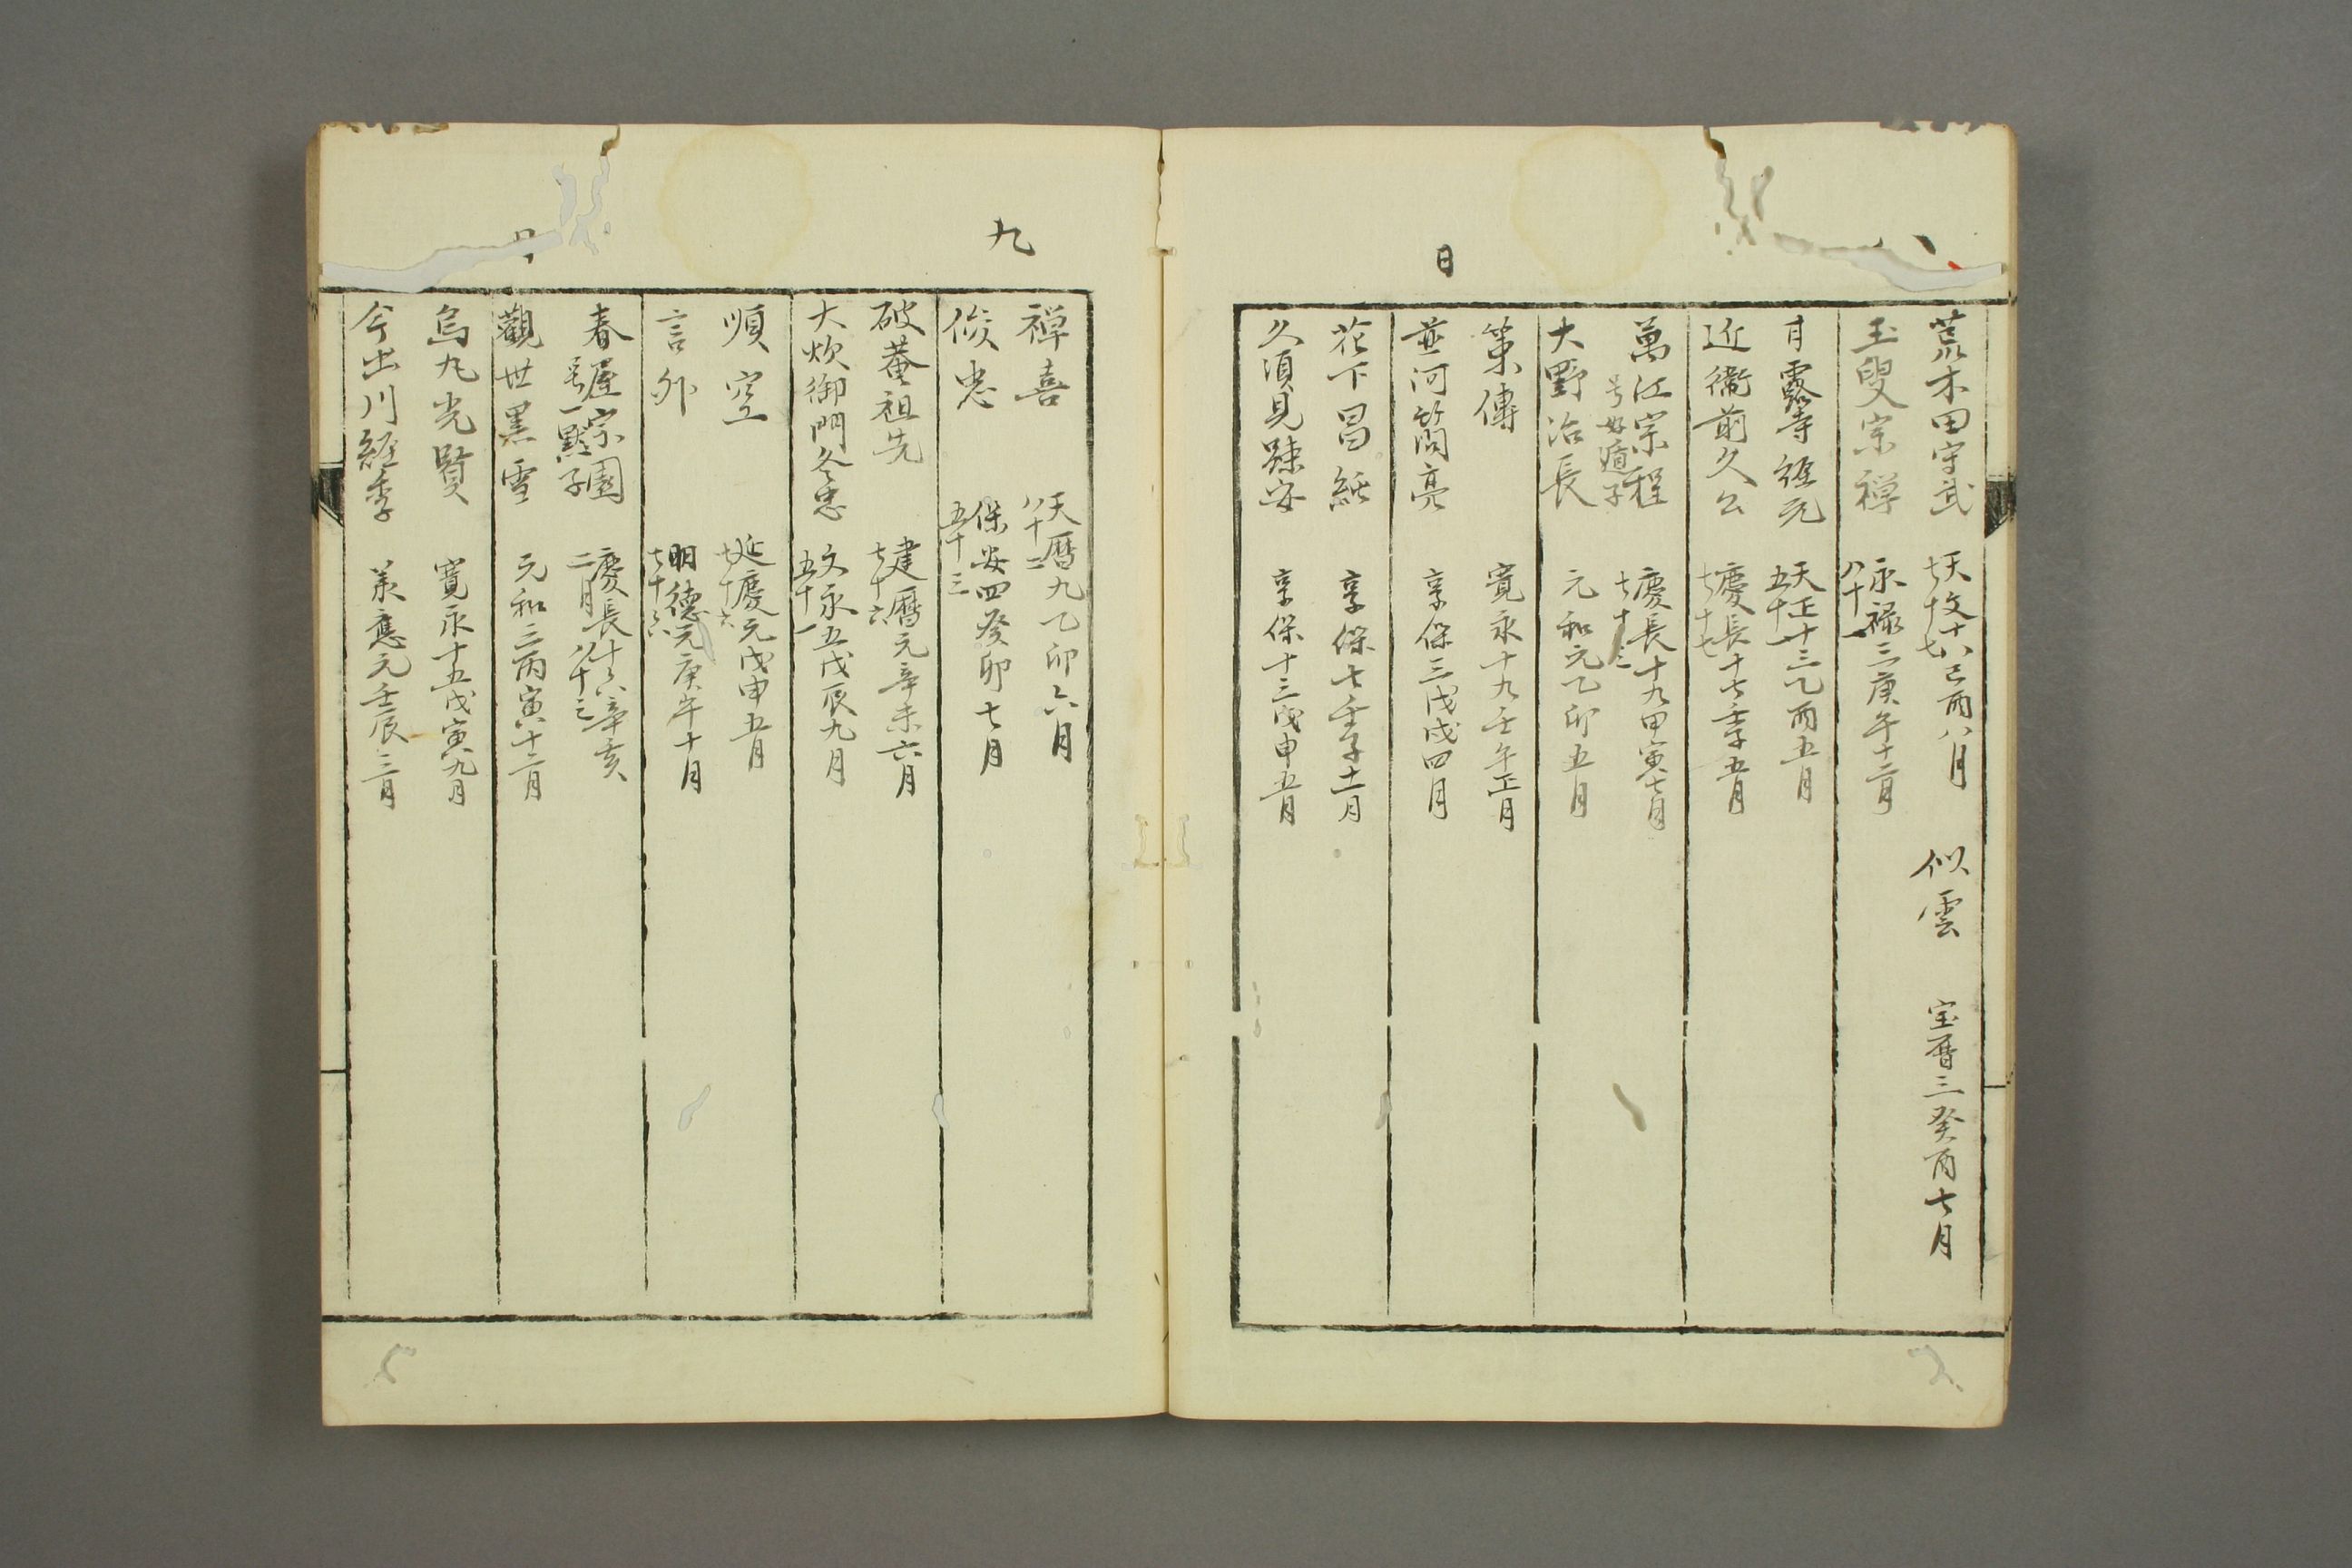 八
日
荒木田守武 天文十八己酉八月 七十七
似雲 宝暦三癸酉七月
玉叟宗禅 永禄三庚午十二月 八十一
甘露寺経元 天正十三乙酉五月 五十一
近衛前久公 慶長十七壬子五月 七十七
萬江宗程 慶長十九甲寅七月 七十三
大野治長 元和元乙卯五月
策傳 寛永十九壬午正月
並河簡亮 享保三戊戌四月
花下昌 享保七壬子十一月
久須見疎安 享保十三戊申五月
九
日
禅喜 天暦九乙卯六月 八十二
俊忠 保安四癸卯七月 五十三
破菴祖先 建暦元辛未六月 七十六
大炊御門冬忠 文永五戊辰九月 五十一
順空 延慶元戊申五月 七十六
言外 明德元庚午十月 七十六
春屋宗園 慶長十六辛亥二月 八十三
号一黙子
觀世黒雪 元和二丙寅十二月
烏丸光賢 寛永十五戊寅九月
今出川經季 承應元壬辰二月